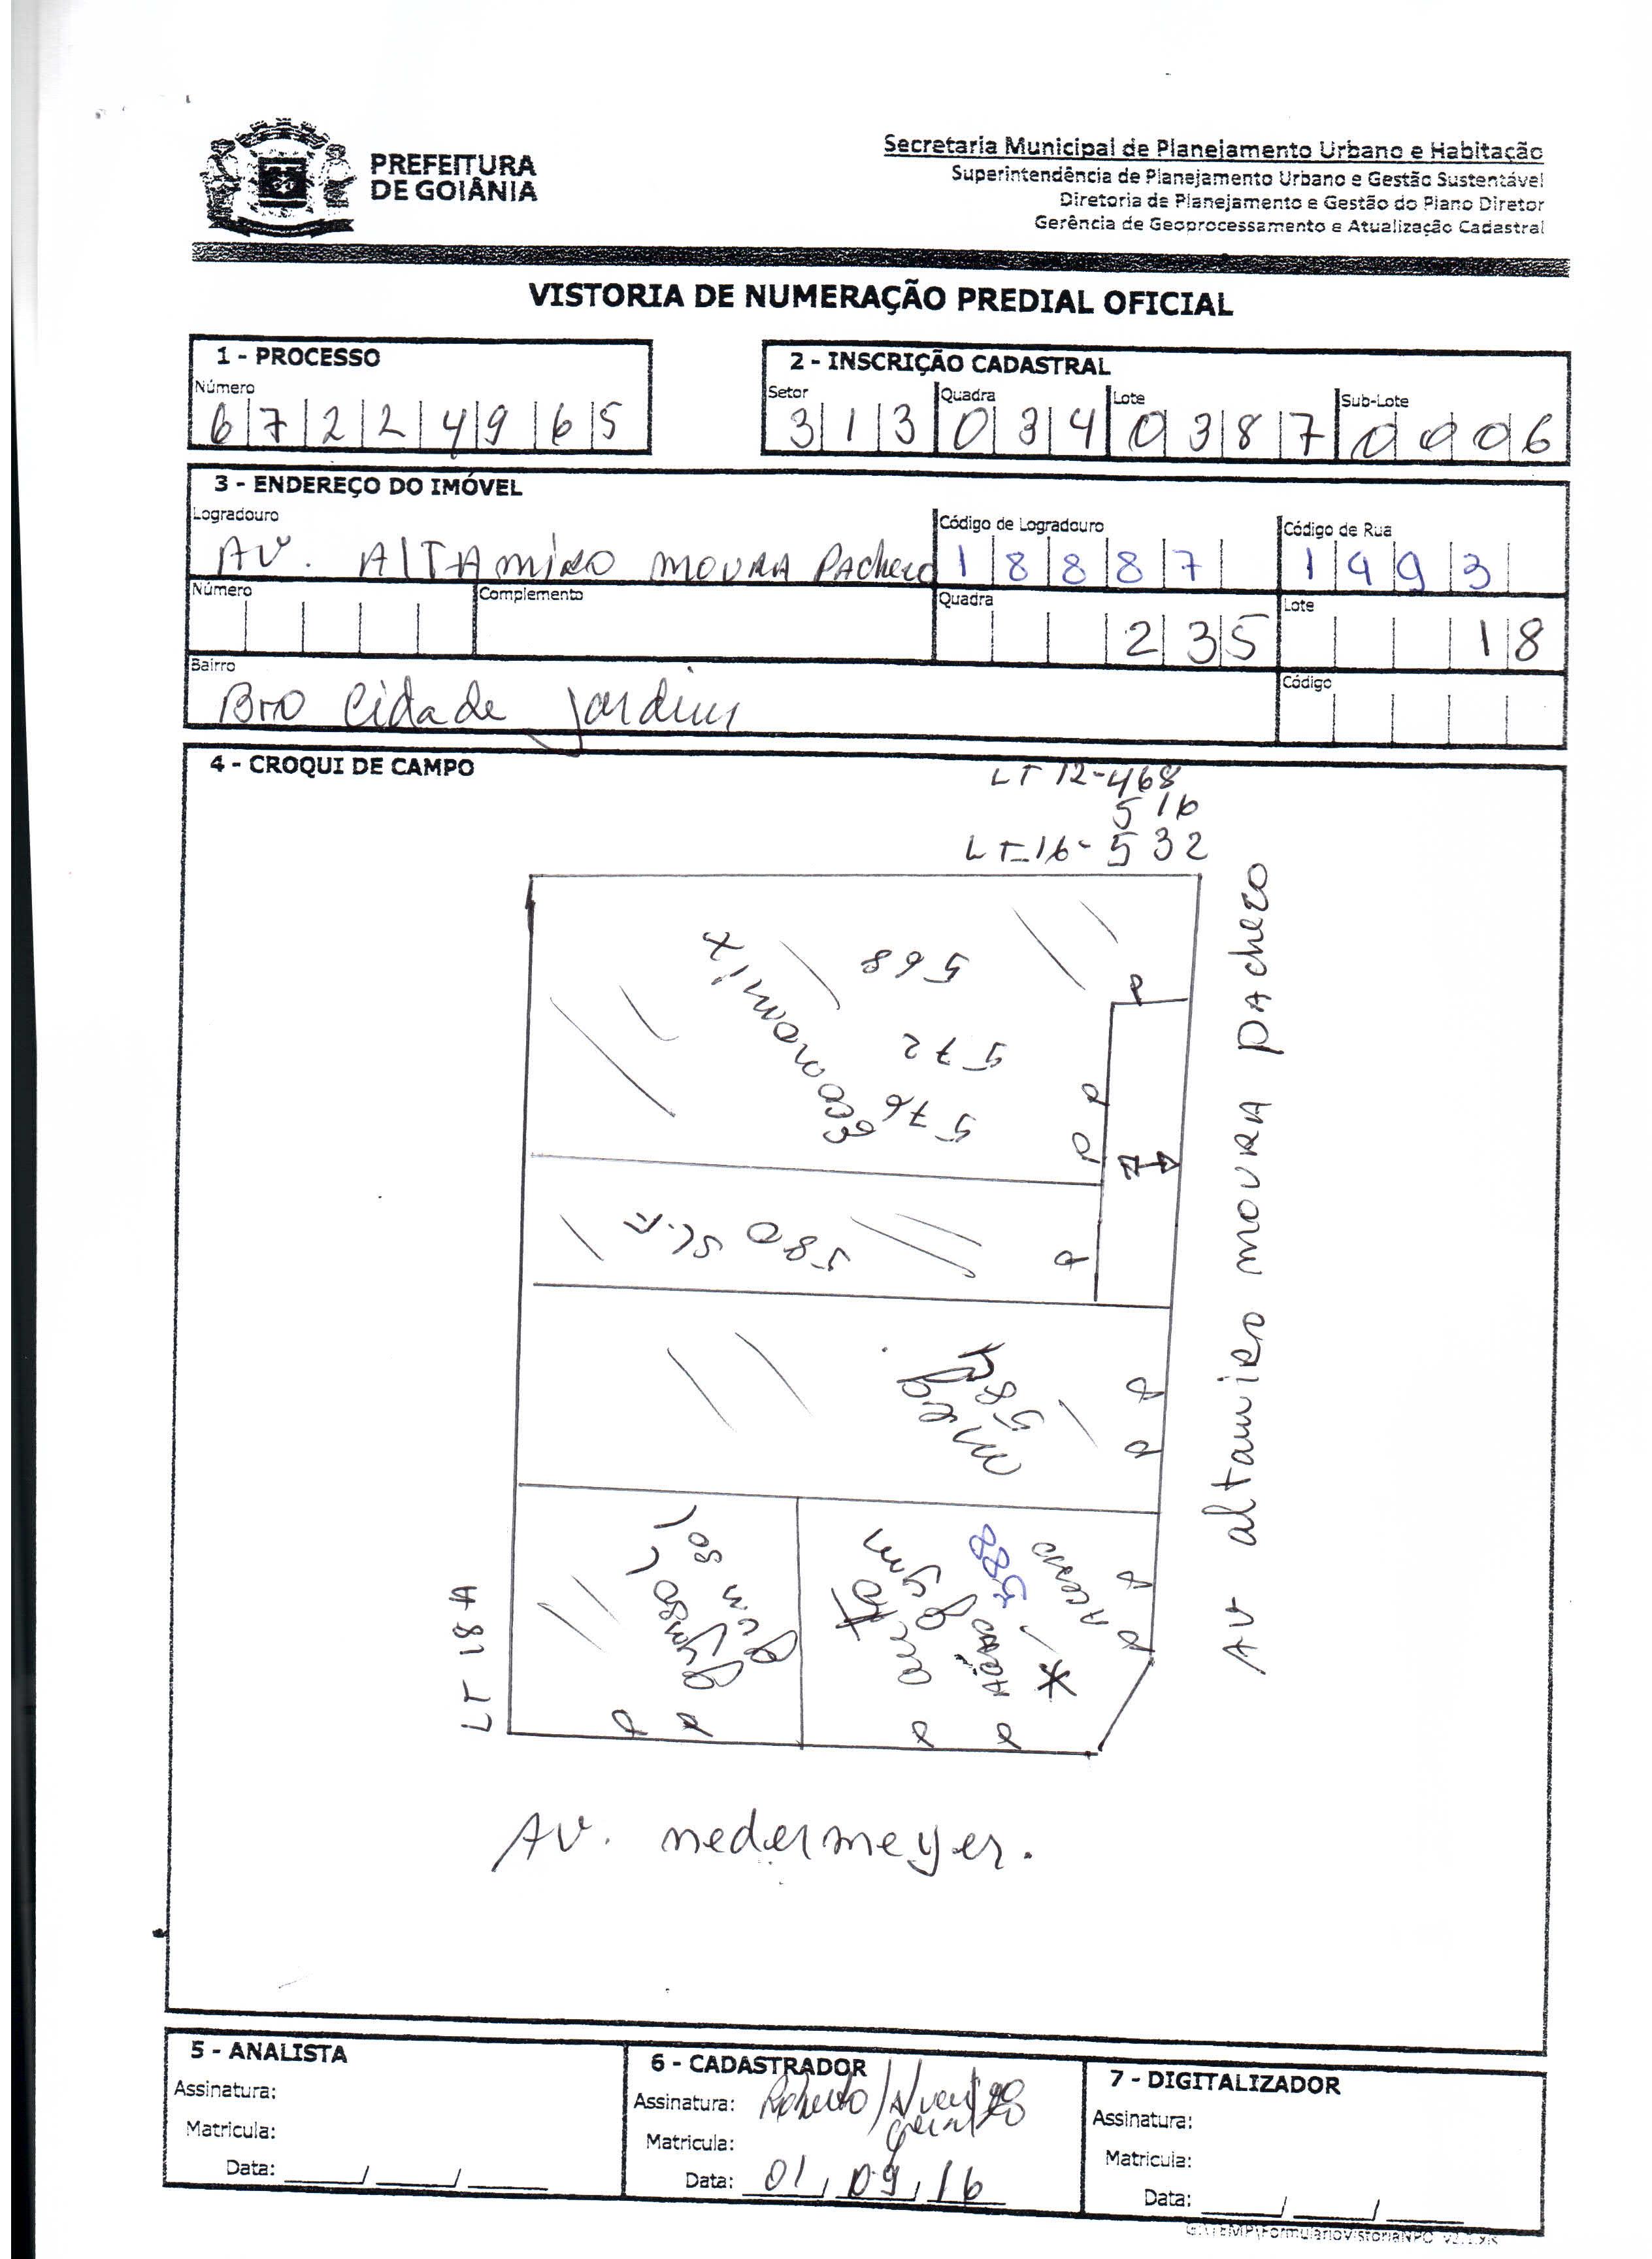 PREFEITURA
DE GOIÂNIA
Secretaria Municipal de Planejamento Urbano e Habitação
Superintendência de Planejamento Urbano e Gestão Sustentável
Diretoria de Planejamento e Gestão do Plano Diretor
Gerência de Geoprocessamento e Atualização Cadastral
VISTORIA DE NUMERAÇÃO PREDIAL OFICIAL
1 - PROCESSO
Número
6 7 2 2 4 9 6 5
2 - INSCRIÇÃO CADASTRAL
Setor Quadra Lote Sub-Lote
3 1 3 0 3 4 0 3 8 7 0 0 0 6
3 - ENDEREÇO DO IMÓVEL
Logradouro Código de Logradouro Código de Rua
AV. AlTAmiRO MOURA PAcheco 1 8 8 8 7 1 4 9 3
Número Complemento Quadra Lote
2 3 5 1 8
Bairro Código
Bro Cidade Jardim
4 - CROQUI DE CAMPO
LT 12-468
516
LT-16-532
568
572
576
Economix
580 SL.F
584
Mega
588
Acesso
Acesso
gym
LT 18A
AV altamiro moura pacheco
AV. nedermeyer.
5 - ANALISTA
Assinatura:
Matricula:
Data: ____/____/____
6 - CADASTRADOR
Assinatura: Roberto
Matricula:
Data: 01/09/16
7 - DIGITALIZADOR
Assinatura:
Matricula:
Data: ____/____/____